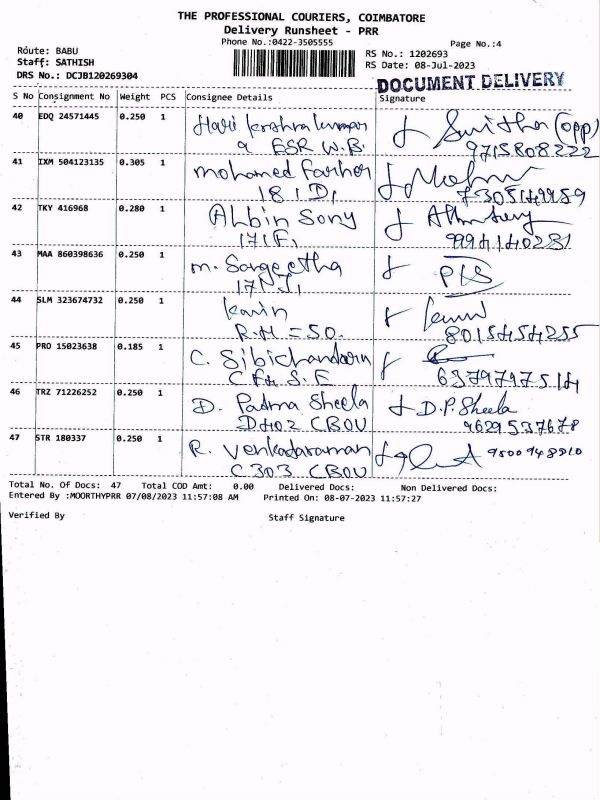 THE PROFESSIONAL COURIERS, COIMBATORE
Delivery Runsheet - PRR
Phone No.:0422-3505555
Page No.:4
Route: BABU
Staff: SATHISH
DRS No.: DCJB120269304
RS No.: 1202693
RS Date: 08-Jul-2023
DOCUMENT DELIVERY
S No Consignment No Weight PCS Consignee Details Signature
40 EDQ 24571445 0.250 1 Hari krishna kumar (opp)
9 ESR W.B. 9715808222
41 IXM 504123135 0.305 1 mohamed
181 D,
42 TKY 416968 0.280 1 Albin Sony
171 F, 9994140281
43 MAA 860398636 0.250 1 m. Sangeetha
44 SLM 323674732 0.250 1
R.H = 50. 8015454255
45 PRO 15023638 0.185 1 C. 
6379797514
46 TRZ 71226252 0.250 1 D. Padma Sheela D.P. Sheela
D402 CBOU 9629537678
47 STR 180337 0.250 1 R. Venkadaraman
C303 CBOU
Total No. Of Docs: 47 Total COD Amt: 0.00 Delivered Docs: Non Delivered Docs:
Entered By :MOORTHYPRR 07/08/2023 11:57:08 AM Printed On: 08-07-2023 11:57:27
Verified By Staff Signature